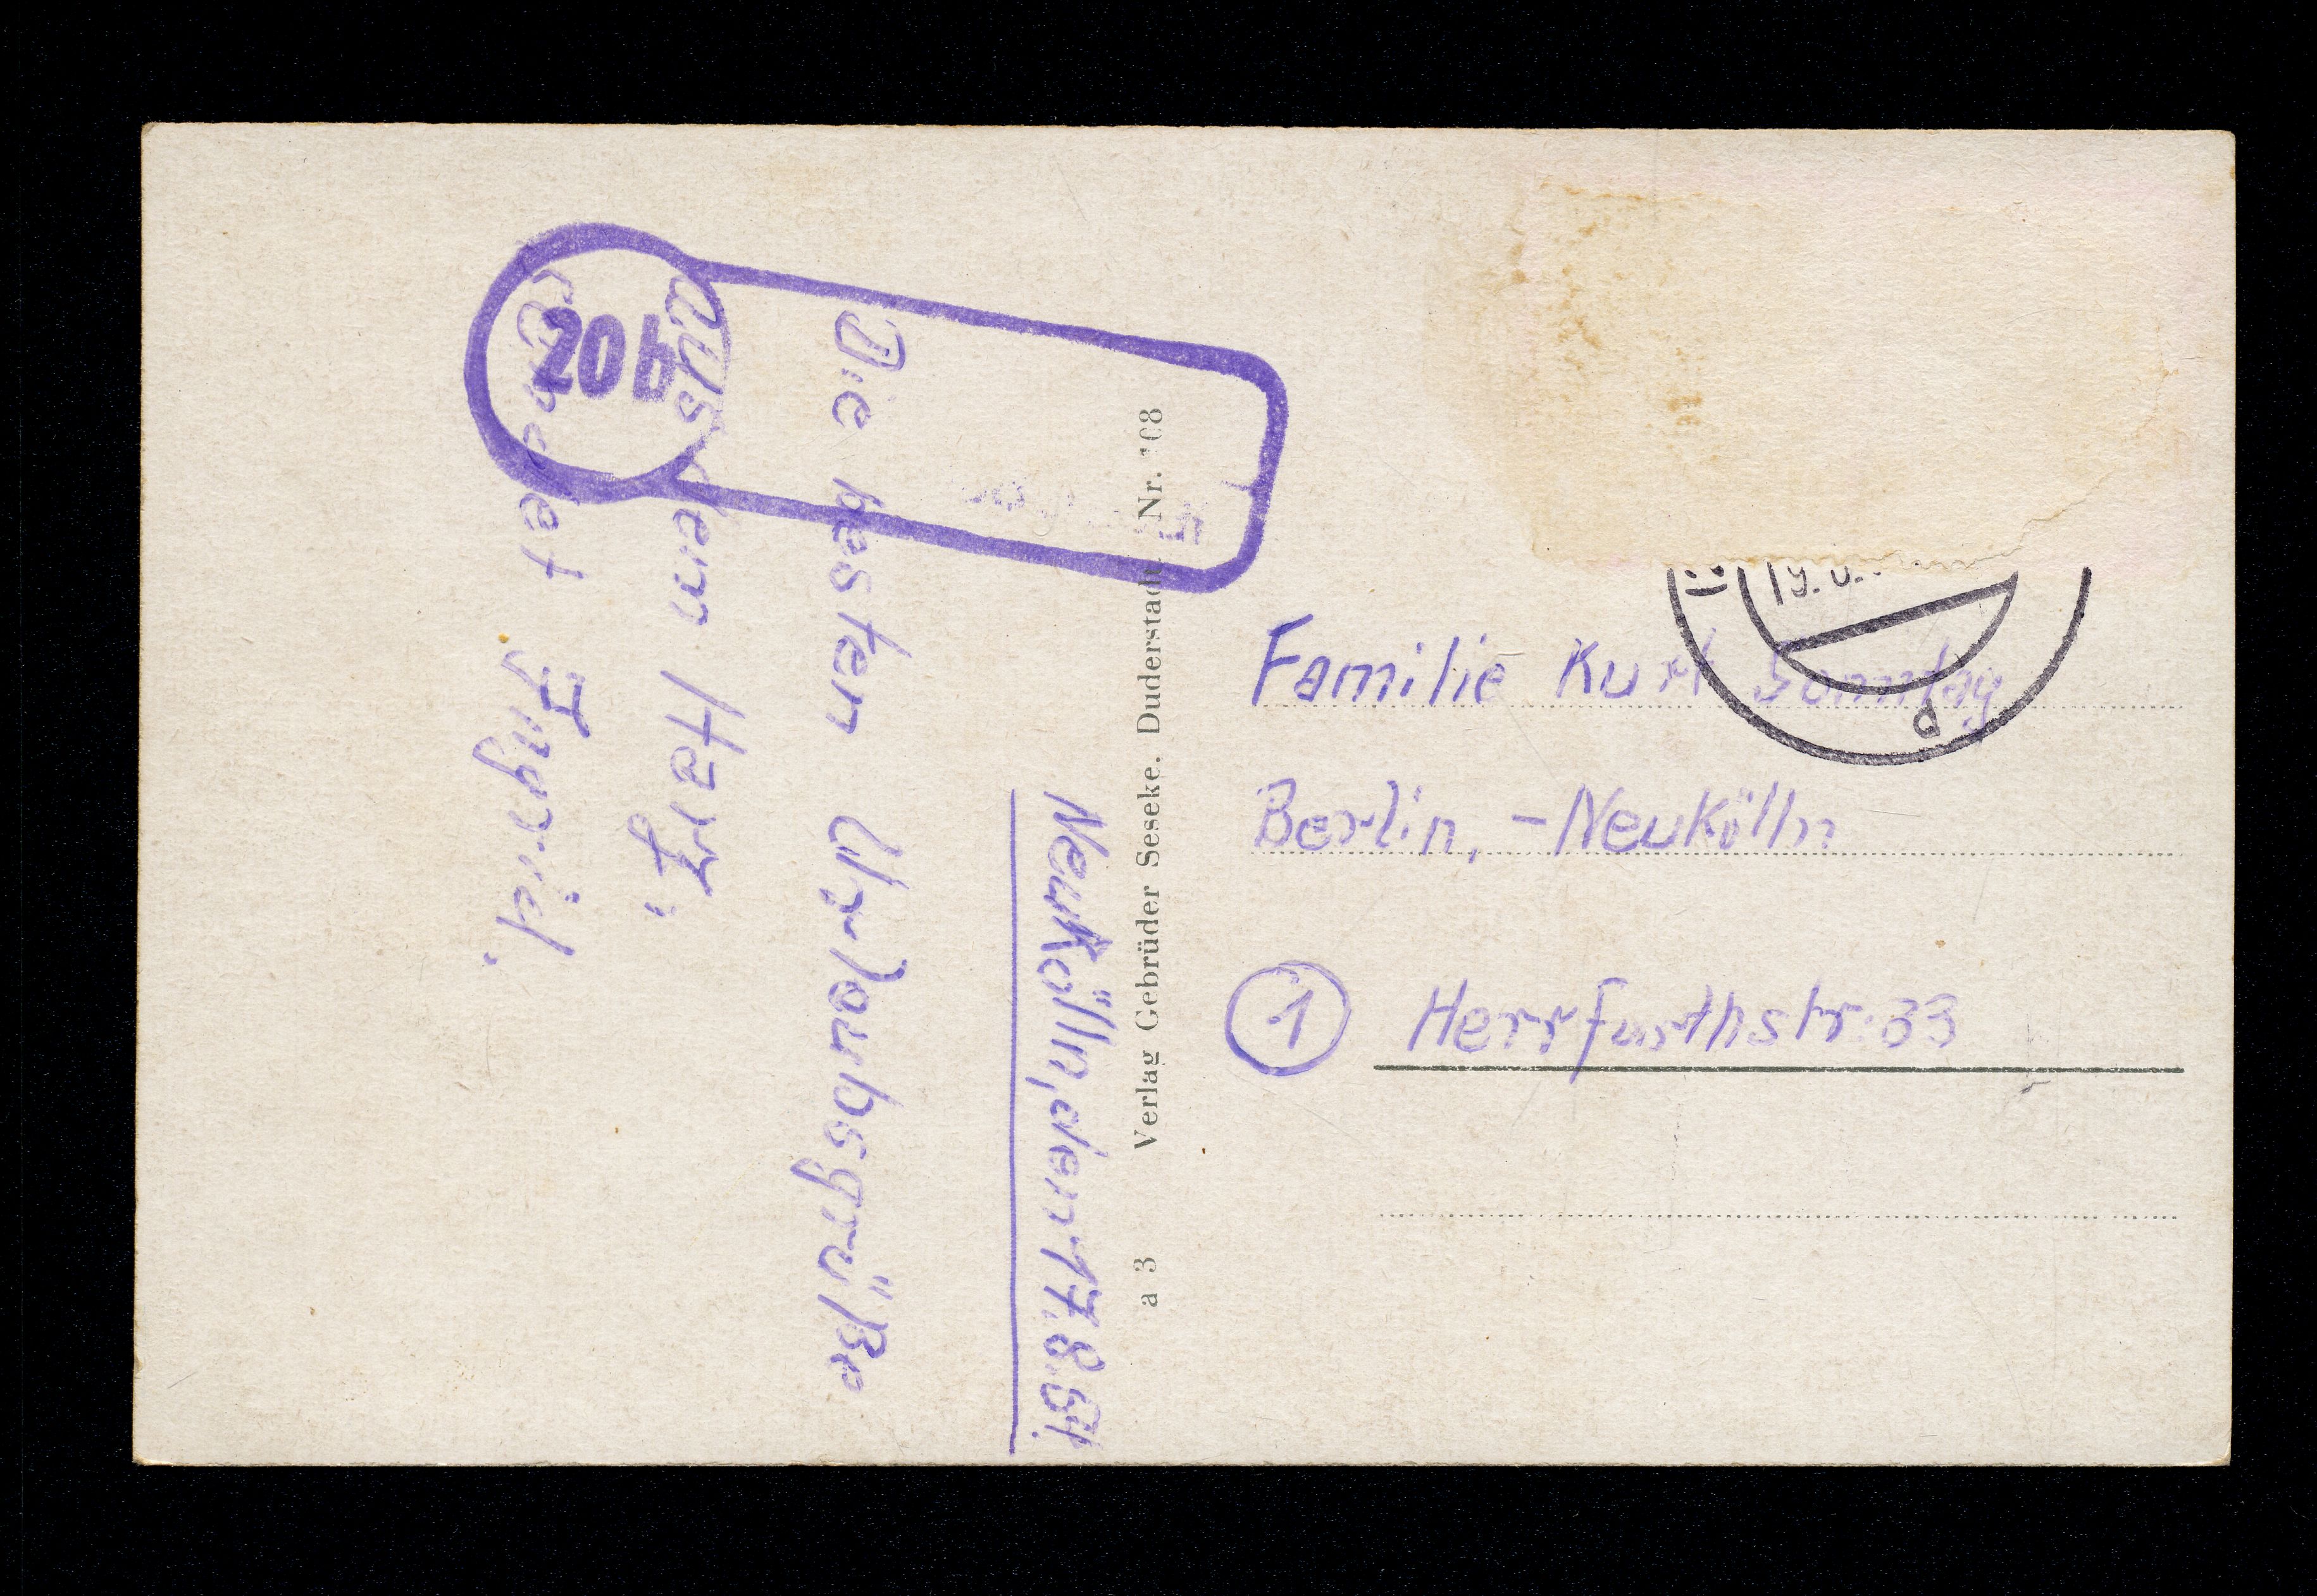 Neukölln, den 17.8.54
Die besten Urlaubsgrüße
aus dem Harz.
Ingrid.
20b
Verlag Gebrüder Seseke. Duderstadt
a 3
Familie Kurt Sonntag
Berlin, - Neukölln
1 Herrfurthstr. 33
d